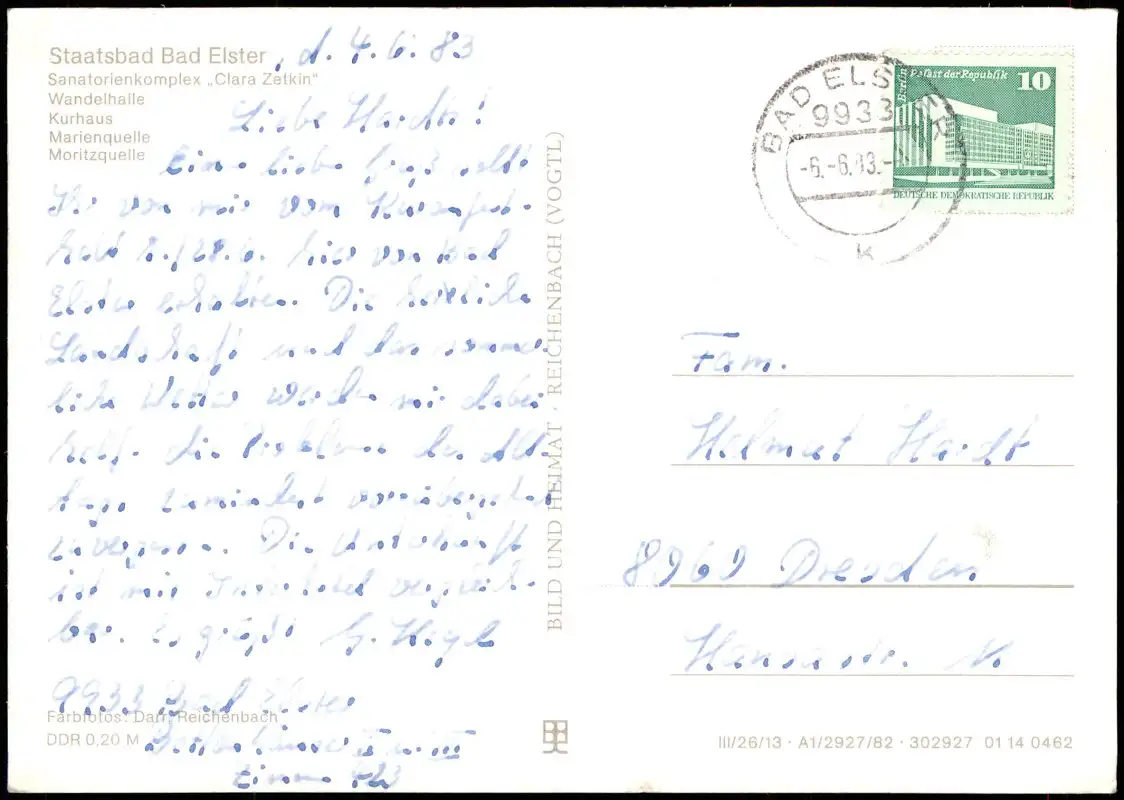 Staatsbad Bad Elster, d. 4. 6. 83
Sanatorienkomplex „Clara Zetkin“
Wandelhalle
Kurhaus
Marienquelle
Moritzquelle
Liebe Hardts!
Einen lieben Gruß sollt
Ihr von mir vom
hier von Bad
Elster erhalten. Die herrliche
Landschaft und das sommer-
liche Wetter dabei
die Probleme des All-
tags zumindest vorübergehend
zu vergessen. Die Unterkunft
ist mit Interhotel vergleich-
bar. Es grüßt
9933 Bad Elster
Zimmer
Farbfotos: Darr, Reichenbach
DDR 0,20 M
BILD UND HEIMAT · REICHENBACH (VOGTL)
BAD ELSTER
9933
k
Berlin Palast der Republik 10
DEUTSCHE DEMOKRATISCHE REPUBLIK
Fam.
Helmut Hardt
Dresden
Hansastr.
III/26/13 · A1/2927/82 · 302927 01 14 0462